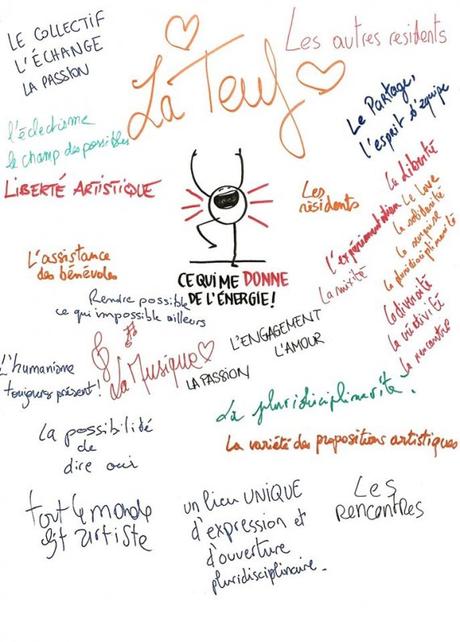 LE COLLECTIF
L'ÉCHANGE
LA PASSION
La Teuf
Les autres résidents
Le Partage,
l'esprit d'équipe
l'éclectisme
le champ des possibles
LIBERTÉ ARTISTIQUE
Les
résidents
La liberté
l'expérimentation
Le love
La solidarité
La surprise
La pluridisciplinarité
La mixité
La diversité
La créativité
La rencontre
L'assistance
des bénévoles
CE QUI ME DONNE
DE L'ÉNERGIE!
Rendre possible
ce qui impossible ailleurs
L'humanisme
toujours présent!
La Musique
L'ENGAGEMENT
L'AMOUR
LA PASSION
La pluridisciplinarité.
La variété des propositions artistiques
La possibilité
de
dire oui
tout le monde
est artiste
un lieu UNIQUE
d'expression et
d'ouverture
pluridisciplinaire.
Les
Rencontres